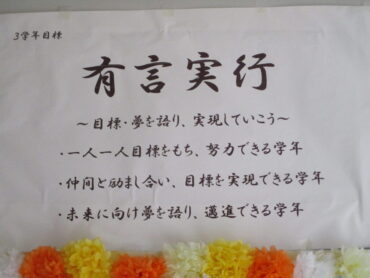 3学年目標
有言実行
～目標・夢を語り、実現していこう～
・一人一人目標をもち、努力できる学年
・仲間と励まし合い、目標を実現できる学年
・未来に向け夢を語り、邁進できる学年